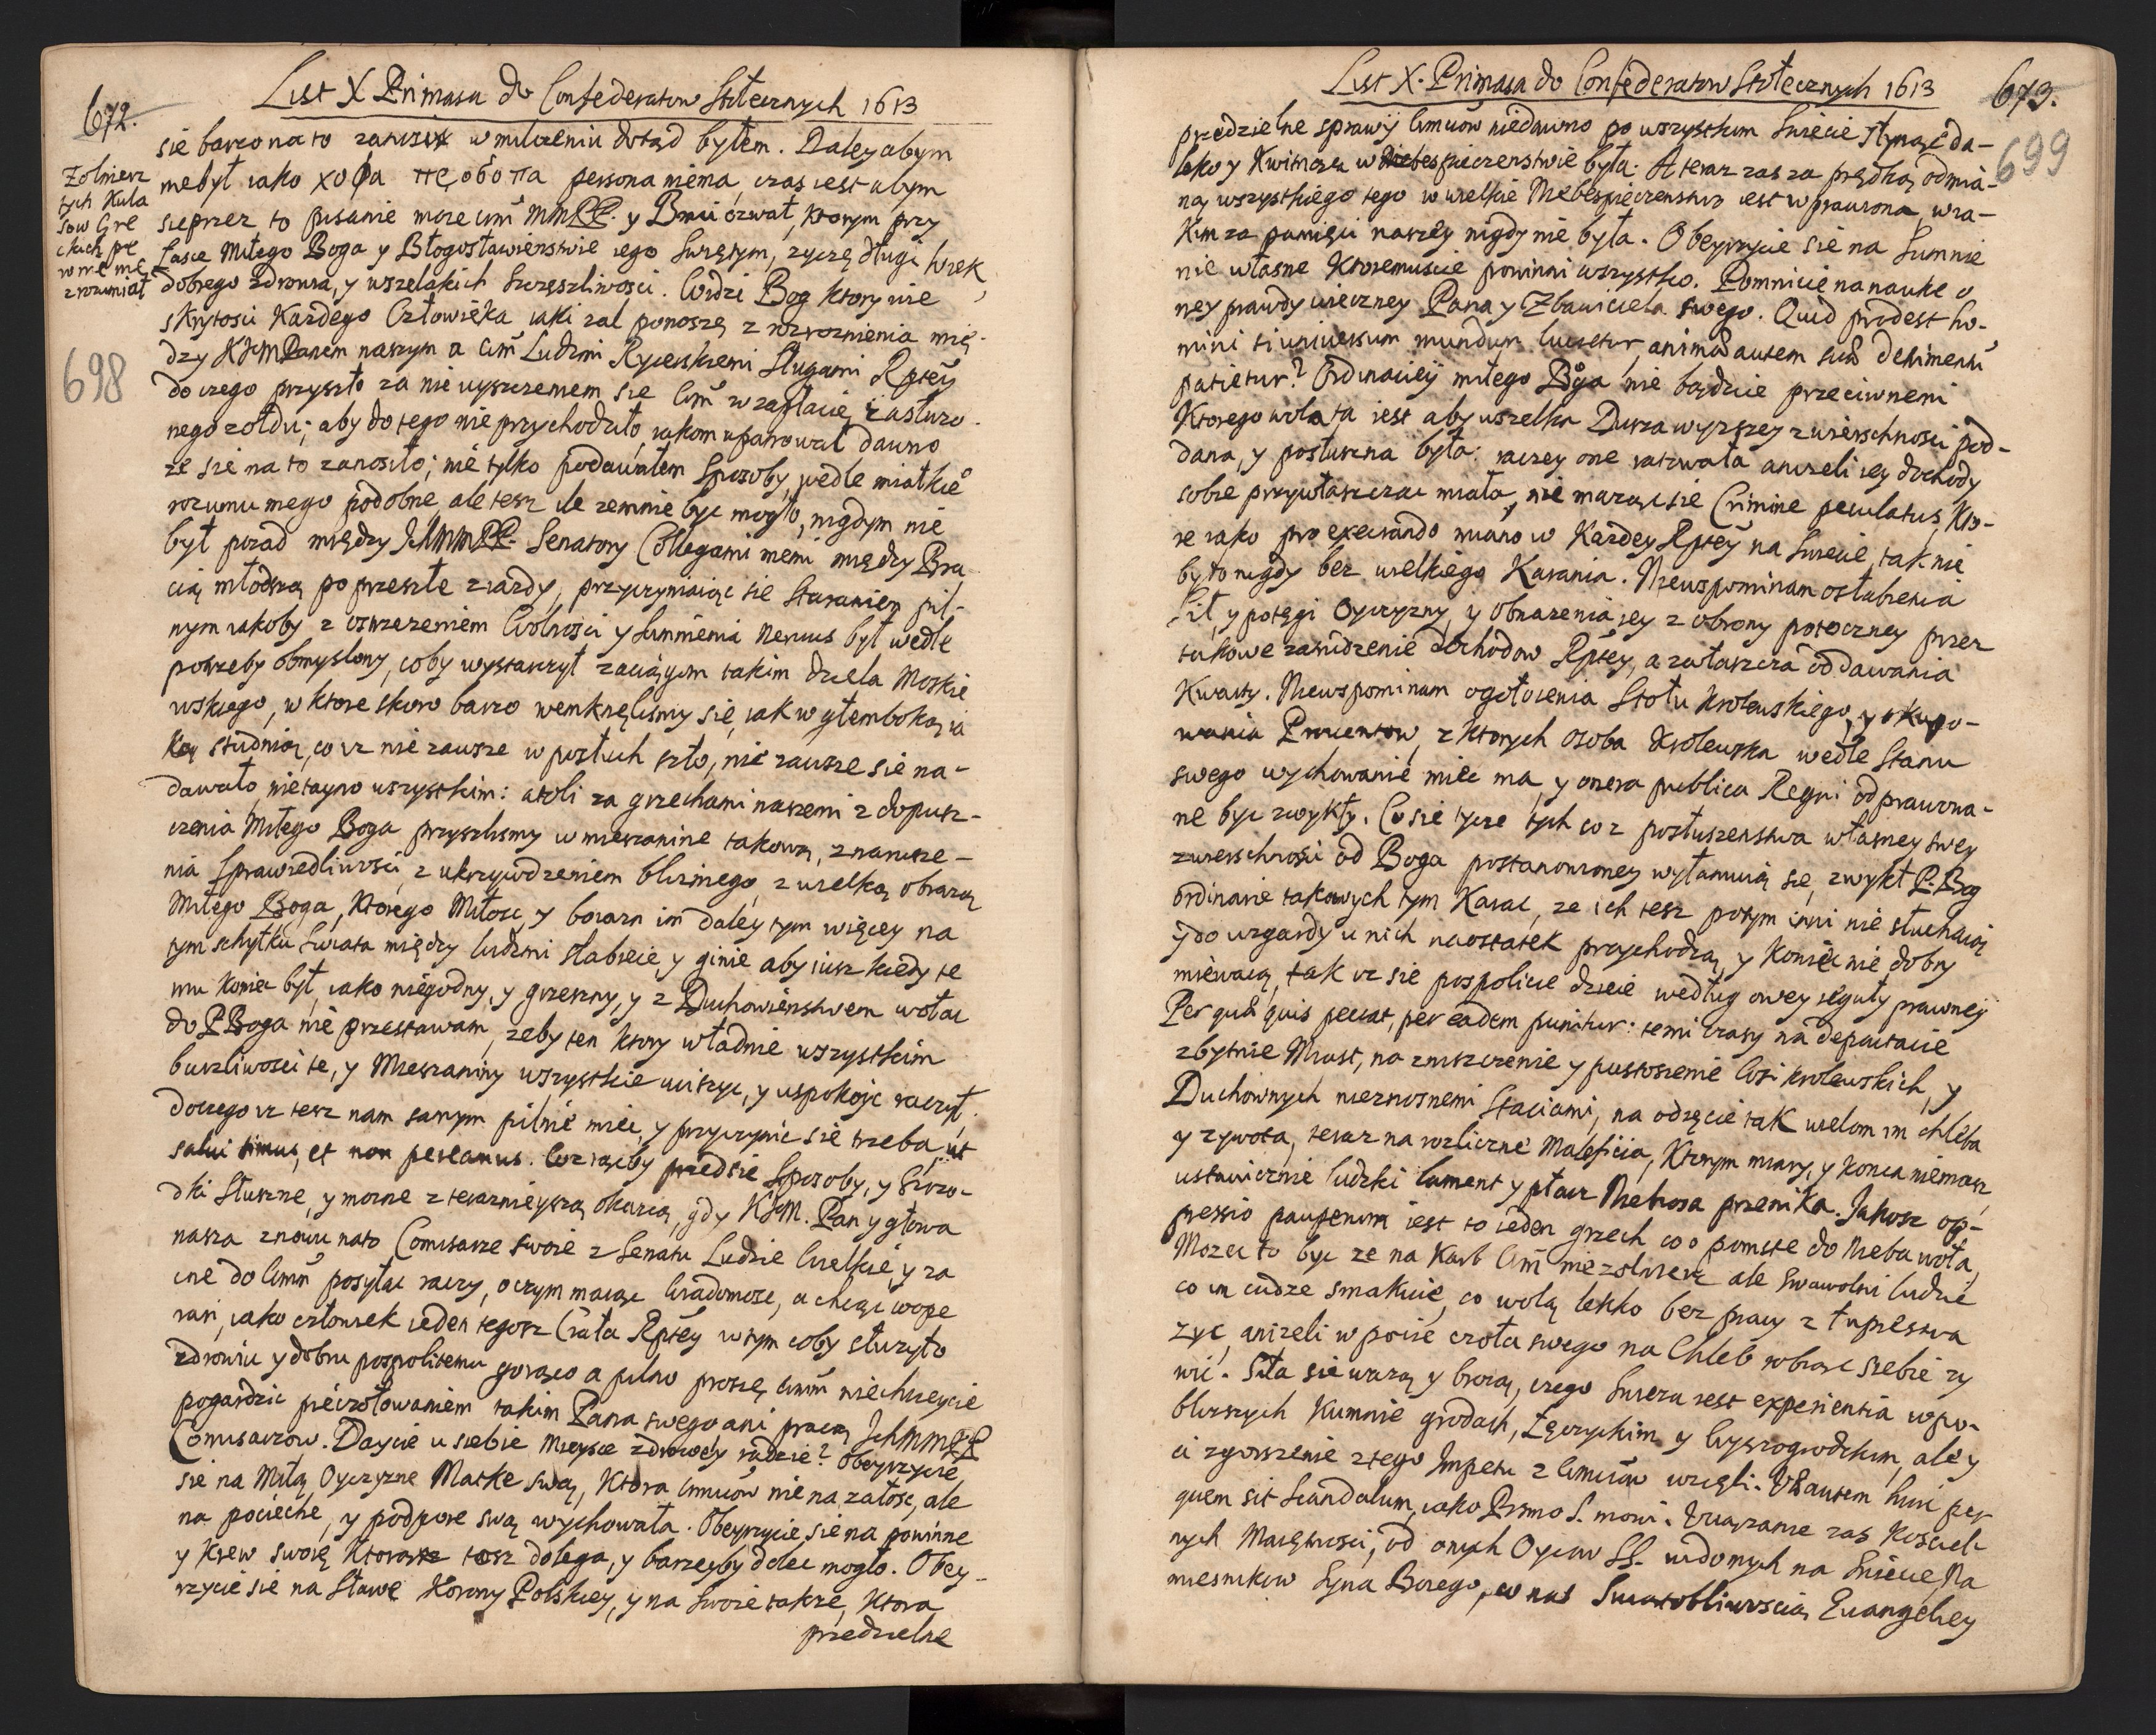 672.
List X Primasa do Confederatow Stołecznych 1613
sie barzo na to zanosi w milczeniu dotąd byłem. Daley abym
niebył iako κοφα persona niema, czas iest abym
Zołnierz
tych Kula
sow Gre
ckich pe
wnie nie
zrozumiał
sie przez to pisanie moie cum MMPP. y Braci ozwał, ktorym przy
łasce Miłego Boga y Błogosławienstwie iego Swiętym, zyczę długi wiek,
dobrego zdrowia, y wszelakich Szczęszliwosci. Widzi Bog ktory wie
skrytosci Kazdego Człowieka iaki zal ponoszę z rozroznienia mię-
dzy KJM Panem naszym a Cim Ludzmi Rycerskiemi Sługami Rptey
698
do czego przyszło za nie uyszczeniem sie Cim w zapłacie zasłuzo-
nego zołdu; aby do tego nie przychodziło, iakom upatrował dawno
ze sie na to zanosiło; nie tylko podawałem Sposoby, wedle miałkie
rozumu mego podobne, ale tesz ile zemnie byc mogło, nigdym nie
był pozad między JchMMPP. Senatory Collegami memi między Bra
cią młodszą po przeszłe ziazdy, przyczyniaiąc sie Staraniem pil-
nym iakoby z ostrzezeniem Wolnosci y Sumnienia Nervus był wedle
potrzeby obmyslony, coby wystarczył zaciągom takim dziela Moskie
wskiego, w ktore skoro barzo wemknęlismy się, iak w głemboką ia
ką studnią, co isz nie zawsze w posłuch szło, nie zawsze sie na-
dawało, nietayno wszystkim: atoli za grzechami naszemi z dopusz-
czenia Miłego Boga przyszlismy w mieszanine takową, z narusze-
nia Sprawiedliwosci, z ukrzywdzeniem bliznego, z wielką obrazą
Miłego Boga, Ktorego Miłosc, y boiazn im daley tym więcey na
tym schyłku Swiata między ludzmi słabieie, y ginie, aby iusz kiedy te
mu koniec był, iako niegodny, y grzeszny, y z Duchowienstwem wołac
do PBoga nie przestawam, zeby ten ktory władnie wszystkim
burzliwosci te, y Mieszaniny wszystkie uciszyc, y uspokoic raczył.
do czego isz tesz nam samym pilnie miec, y przyczynic sie trzeba, ut
salui simus, et non pereamus. Coz iąćby przedsie Sposoby, y Srzo-
dki Słuszne, y mozne z teraznieyszą okazią, gdy KJM. Pan y głowa
nasza znowu na to Comisarze swoie z Senatu Ludzie Wielkie, y za
cne do Cimm posyłac raczy, o czym maiąc Wiadomosc, a chcąc wope
rari, iako człowiek ieden tegosz Ciała Rptey w tym coby słuzyło
zdrowiu y dobru pospolitemu gorąco a pilno proszę Cimm niechcieycie
pogardzic pieczołowaniem takim Pana swego ani pracą JchMMPP
Comisarzow. Daycie u siebie mieysce zdrowey radzie? Obeyrzycie
sie na Miłą Oyczyzne Matke swą, Ktora Cimciow nie na załosc, ale
na pocieche, y podpore swą wychowała. Obeyrzycie sie na powinne
y Krew swoię Ktorą tosz dolega, y barzeyby dolec mogło. Obey-
rzycie sie na Sławę Korony Polskiey, y na Swoie takze, Ktora
przedzielne
List X. Primasa do Confederatow Stołecznych 1613
673.
699
przedzielne sprawy Cimciow niedawno po wszystkim Swiecie słynąc da-
leko y Kwitnąca w Niebespieczenstwie była: A teraz zas za prędką odmia-
ną wszystkiego tego w wielkie Niebespieczenstwo iest wprawiona, w ia-
kim za pamięci naszey nigdy nie była. Obeyrzycie sie na Sumnie
nie własne Ktoremuscie powinni wszystko. Pomnicie na nauke o
ney prawdy wieczney Pana y Zbawiciela swego. Quid prodest ho-
mini si uniuersum mundum lucretur, anima autem sua detrimentu
patietur? Ordinaciey miłego Boga nie bądzcie przeciwnemi
Ktorego wola ta iest aby wszelka Dusza wyzszey zwierschnosci pod-
dana, y posłuszna była: raczey one ratowała anizeli iey dochody
sobie przywłaszczac miała, nie mażąc sie Crimine peculatus, kto-
re iako pro execrando miano w Kazdey Rptey na Swiecie, tak nie
było nigdy bez wielkiego Karania. Niewspominam osłabienia
Sił, y potęgi Oyczyzny, y obnazenia iey z obrony potoczney przez
takowe zawidzenie dochodow Rptey, a zwłaszcza oddawania
Kwarty. Niewspominam ogołocenia Stołu Krolewskiego, y okupo-
wania Prowentow, z ktorych osoba Krolewska wedle Stanu
swego wychowanie miec ma, y onera publica Regni odprawowa-
ne byc zwykły. Co sie tycze tych co z posłuszenstwa własney swey
zwierschnosci od Boga postanowioney wyłamuią się, zwykł P. Bog
ordinarie takowych tym Karac, ze ich tesz potym inni nie słuchaią
y do wzgardy u nich na ostatek przychodzą, y Koniec nie dobry
miewaią, tak isz sie pospolicie dzieie według owey reguły prawney
Per qua quis peccat, per eadem punitur: temi czasy na depactacie
zbytnie Miast, na zniszczenie y pustoszenie Wsi krolewskich, y
Duchownych nieznosnemi Staciami, na odzęcie tak wielom im chleba
y zywota, teraz na rozliczne Maleficia, Ktorym miary, y konca niemasz
ustawicznie ludzki lament y płacz Niebiosa przenika. Jakosz op-
pressio pauperum iest to ieden grzech co o pomste do Nieba woła,
Mozec to byc ze na karb Cim nie zołnierz ale Swawolni ludzie
co im cudze smakuie, co wolą lekko bez pracy z łupiestwa
zyc, anizeli w pocie czoła swego na Chleb robiąc siebie zy
wic. Siła sie wazą y broią, czego Swieza iest experientia w po-
blizszych Kumnie grodach, Łęczyckim y Wyszogrodzkim, ale y
ci zgorszenie z tego Impetu z Cimciow wzięli. Vae autem huic per
quem sit Scandalum, iako Pismo S. mowi. Wiązanie zas Kosciel-
nych Maiętnosci, od onych Oycow SS. widomych na Swiecie Na
miesnikow Syna Bozego, co nas Swiatobliwoscią Euangeliey